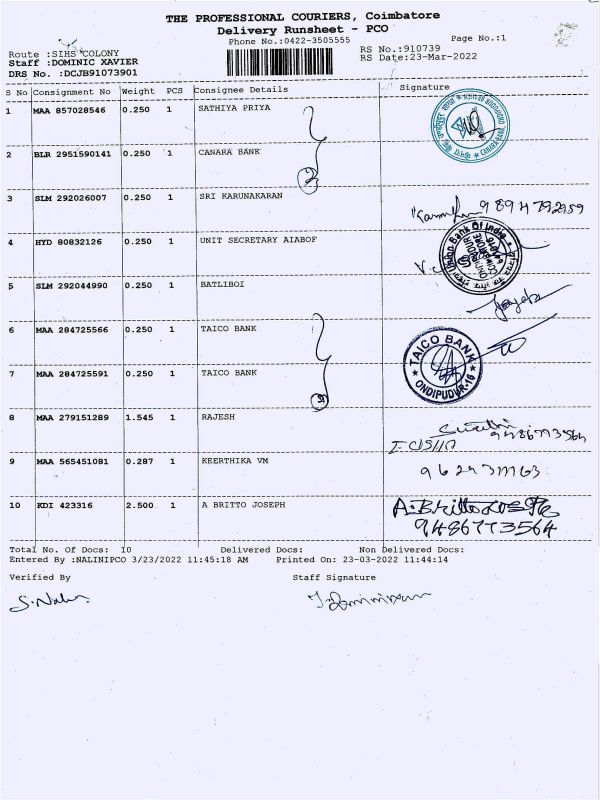 THE PROFESSIONAL COURIERS, Coimbatore
Delivery Runsheet - PCO
Phone No.:0422-3505555
Page No.:1
Route :SIHS COLONY
RS No.:910739
Staff :DOMINIC XAVIER
RS Date:23-Mar-2022
DRS No. :DCJB91073901
S No Consignment No Weight PCS Consignee Details Signature
1 MAA 857028546 0.250 1 SATHIYA PRIYA
2 BLR 2951590141 0.250 1 CANARA BANK
2
3 SLM 292026007 0.250 1 SRI KARUNAKARAN
9894792959
4 HYD 80832126 0.250 1 UNIT SECRETARY AIABOF
Union Bank Of India
5 SLM 292044990 0.250 1 BATLIBOI
6 MAA 284725566 0.250 1 TAICO BANK
TAICO BANK
ONDIPUDUR-16
7 MAA 284725591 0.250 1 TAICO BANK
8 MAA 279151289 1.545 1 RAJESH
9486773564
9 MAA 565451081 0.287 1 KEERTHIKA VM
10 KDI 423316 2.500 1 A BRITTO JOSEPH
A. Britto
9486773564
Total No. Of Docs: 10 Delivered Docs: Non Delivered Docs:
Entered By :NALINIPCO 3/23/2022 11:45:18 AM Printed On: 23-03-2022 11:44:14
Verified By Staff Signature